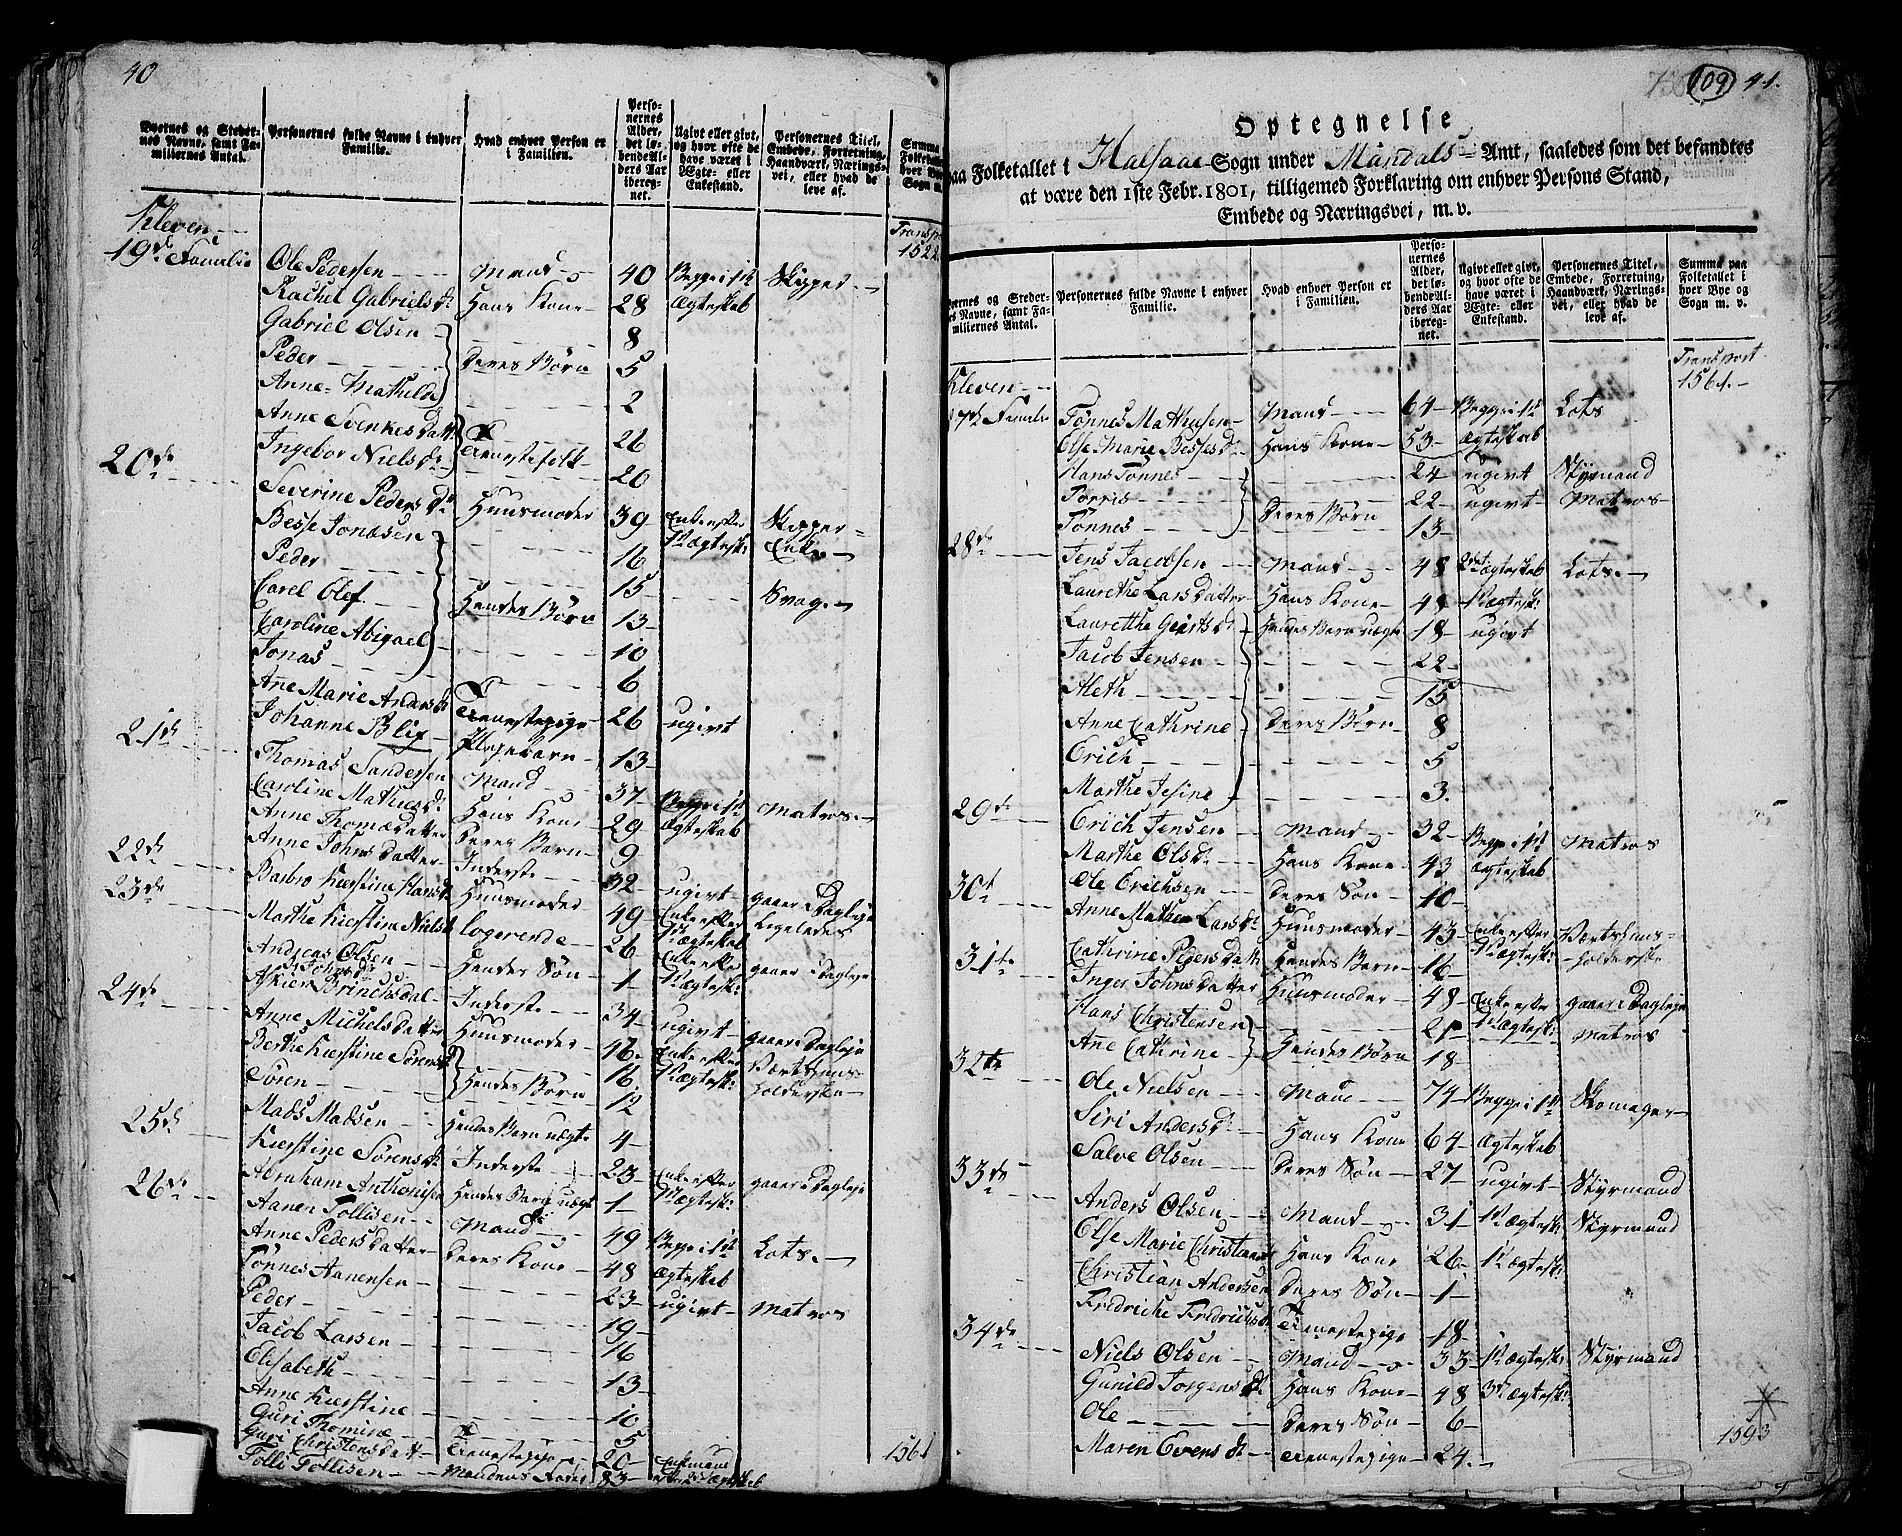 40
Byernes og Stedernes Navne, samt Familiernes Antal.
Personernes fulde Navne i enhver Familie.
Hvad enhver Person er i Familien.
Personernes Alder, det løbende Alders Aar iberegnet.
Ugivt eller givt, og hvor ofte de have været i Ægte- eller Enkestand.
Personernes Titel, Embede, Forretning, Haandværk, Næringsvei, eller hvad de leve af.
Summa Folketall hver Bye Sogn m.
Kleven
Transp 1522
19de Familie Ole Pedersen Mand 40 Begge i 1st Skipper
Rachel Gabriels Dr Hans Kone 28 Ægteskab
Gabriel Olsen 8
Peder Deres Børn 5
Anne Mathilde 2
Anne Svenkes Datt 26
Ingebor Niels Dr Tienestefolk 20
20de Severine Peders Dr Huusmoder 39 Enke efter 1st Ægtesk: Skipper Enke
Besse Jonasen 16
Peder 15
Carel Olef Hendes Børn 13
Caroline Abigael 10
Jonas 6
Anne Marie Anders D Tienestepige 26 ugivt
Johanne Blix Plejebarn 13
21de Thomas Sandersen Mand 37 Begge i 1st Matros
Caroline Mathies Dr Hans Kone 29 Ægteskab
Anne Thomæ Datter Deres Barn 9
22de Anne Johns Datter Inderste 32 ugivt gaaer i Dagleje
23de Barbro Kierstine Hans D Huusmoder 49 Enke efter 1st Ægteskab Ligeledes
Marthe Kierstine Niels D logerende 26 Enke efter 1st Ægtesk: gaaer i Dagleje
Andreas Olsen Hendes Søn 1
24de Askier Brinchsdal Inderste 34 ugivt gaaer i Dagleje
Anne Michels Datter Huusmoder 46 Enke efter 1st Ægtesk: Værtshus-holderske
Berthe Kierstine Sørens D 16
Søren Hendes Børn 12
Mads Madsen Hendes Barn uægte 4
25de Kierstine Sørens Dr Inderste 23 Enke efter 1st Ægtesk: gaaer i Dagleje
Abraham Anthonisen Hendes Barn uægt 1
26de Aanen Tollisen Mand 49 Begge i 1st Lots
Anne Peders Datter Deres Kone 48 Ægteskab
Tønnes Aanensen 23 ugivt Matros
Peder 19
Jacob Larsen 16
Elisabeth 13
Anne Kierstine 10
Guri Thomine 5
Guri Christens Datt Tienestepige 20
Tolli Tollisen Mandens Fader 83 Enkemand efter 2det Ægteskab
1561
109 41.
Optegnelse
paa Folketallet i Halsaae Sogn under Mandals Amt, saaledes som det befandtes
at være den 1ste Febr. 1801, tilligemed Forklaring om enhver Persons Stand,
Embede og Næringsvei, m. v.
ernes og Stedernes Navne, samt Familiernes Antal.
Personernes fulde Navne i enhver Familie.
Hvad enhver Person er i Familien.
Personernes Alder, det løbende Alders Aar iberegnet.
Ugivt eller givt, og hvor ofte de have været i Ægte- eller Enkestand.
Personernes Titel, Embede, Forretning, Haandværk, Næringsvei, eller hvad de leve af.
Summa paa Folketallet i hver Bye og Sogn m. v.
Kleven
Transport 1561.
27de Familie Tønnes Mathiesen Mand 64 Begge i 1st Lots
Else Marie Besses Dr Hans Kone 53 Ægteskab
Hans Tønnes 24 ugivt Styrmand
Tørris 22 ugivt Matros
Tønnes Deres Børn 13
28de Jens Jacobsen Mand 48 2det Ægteskab Lots
Laurethe Lars Datter Hans Kone 48 1st Ægtesk:
Laurethe Geerts Dr Hendes Barn uægte 18 ugivt
Jacob Jensen 22
Aleth 15
Anne Cathrine Deres Børn 8
Erich 5
Marthe Jesine 3
29de Erich Jensen Mand 32 Begge i 1st Matros
Marthe Ols Dr Hans Kone 43 Ægteskab
Ole Erichsen Deres Søn 10
30te Anne Mathea Lars Dr Huusmoder 43 Enke efter 1st Ægtesk: Værtshuus-holderske
Cathrine Peders Datt Hendes Barn 16
31te Inger Johns Datter Huusmoder 48 Enke efter 1st Ægtesk: gaaer i Dagleje
Hans Christensen 21 Matros
Anne Cathrine Hendes Børn 18
32te Ole Nielsen Mand 74 Begge i 1st Skomager
Siri Anders Dr Hans Kone 64 Ægteskab
Salve Olsen Deres Søn 27 ugivt Styrmand
33de Anders Olsen Mand 31 1st Ægtesk: Styrmand
Else Marie Christians Hans Kone 26 1st Ægtesk:
Christian Andersen Deres Søn 1
Fredriche Fredrichs D Tienestepige 18
34de Niels Olsen Mand 33 1st Ægtesk: Styrmand
Gunild Jørgens Dr Hans Kone 48 3de Ægtesk:
Ole Deres Søn 6
Maren Evens Dr Tienestepige 24
1593